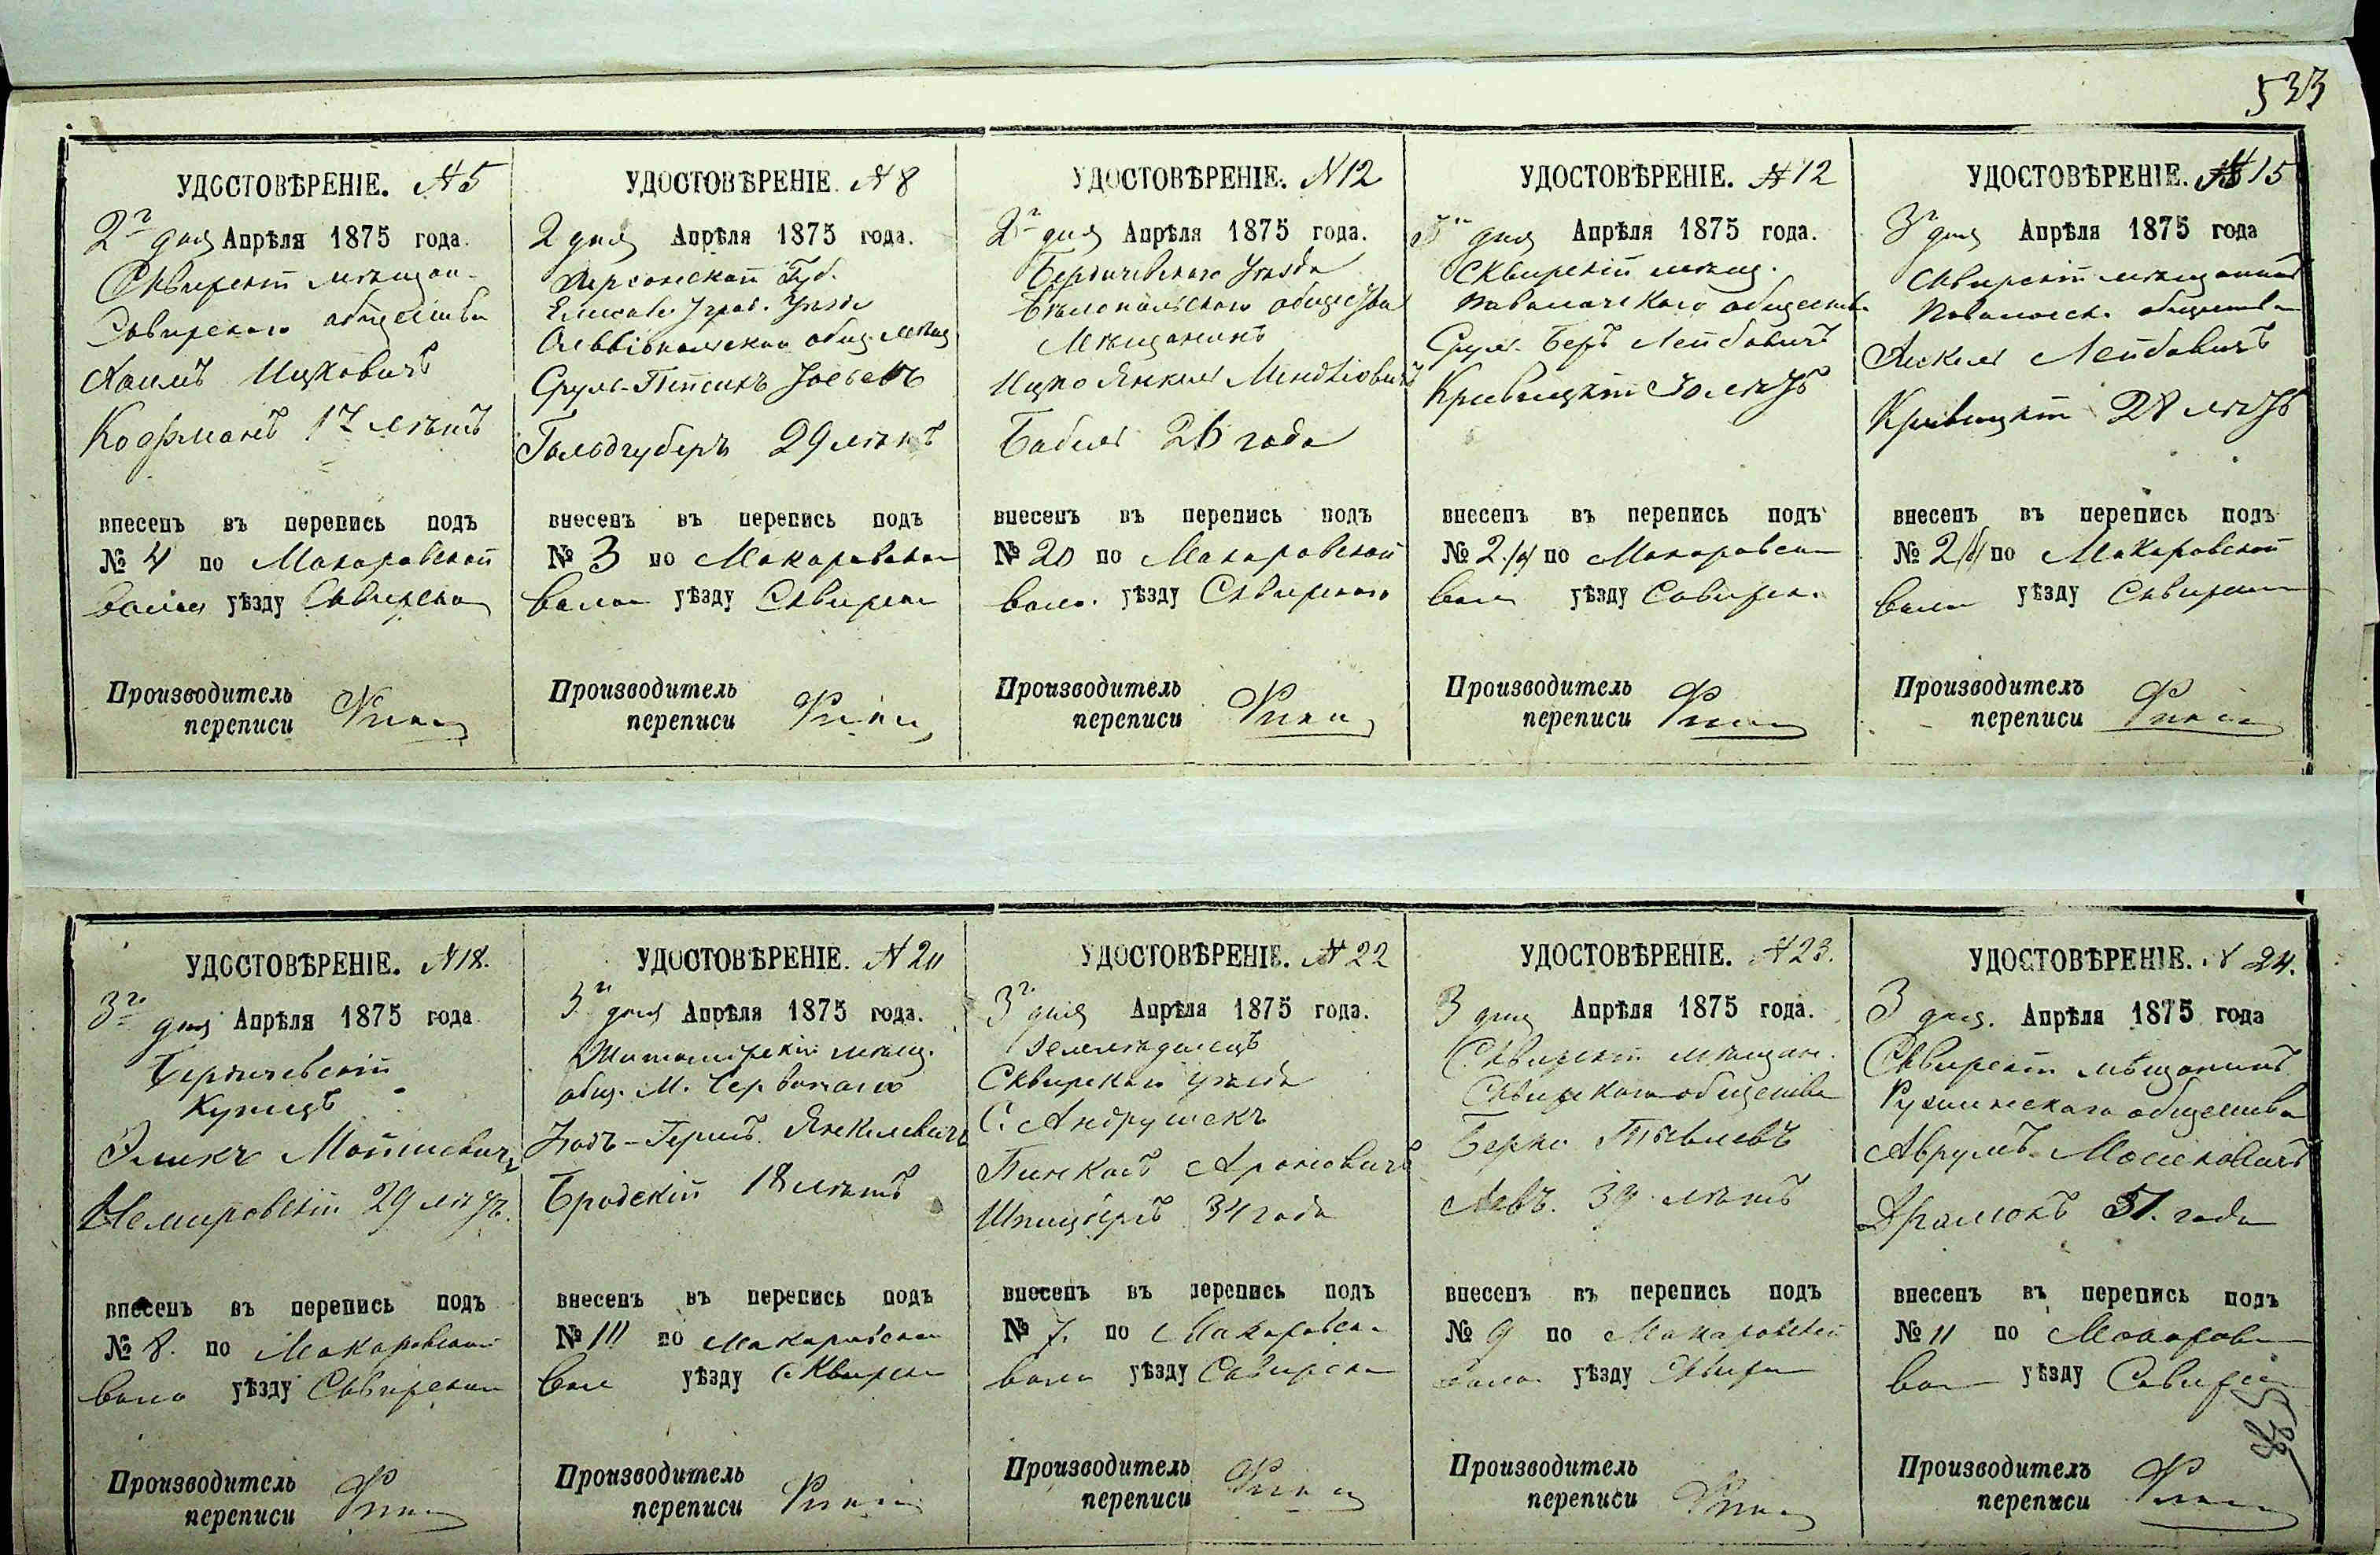 533
УДОСТОВѢРЕНІЕ. № 5
2го дня Апрѣля 1875 года.
Сквирскій мѣщан.
Сквирскаго общества
Хаимъ Ицковичъ
Кофманъ 17 лѣтъ
внесенъ въ перепись подъ
№ 4 по Макаровской
уѣзду Сквирско
Производитель
переписи
УДОСТОВѢРЕНІЕ № 8
2 дня Апрѣля 1875 года.
Херсонской Губ.
Елисаветград. Уѣзда
общ. мѣщ.
Сруль-Пейсихъ
Гольдгуберъ 29 лѣтъ
внесенъ въ перепись подъ
№ 3 по Макаровской
уѣзду Сквирск
Производитель
переписи
УДОСТОВѢРЕНІЕ. № 12
2го дня Апрѣля 1875 года.
Бердичевскаго Уѣзда
Бѣлопольскаго общества
Мѣщанинъ
Ицко Янкель Менделовичъ
Бабель 26 года
внесенъ въ перепись подъ
№ 20 по Макаровской
воло. уѣзду Сквирскаго
Производитель
переписи
УДОСТОВѢРЕНІЕ. № 12
дня Апрѣля 1875 года.
Сквирскій мѣщ.
Паволочскаго обществ.
Сруль-Беръ Лейбовичъ
Кривицкій 30 лѣтъ
внесенъ въ перепись подъ
№ 2 по Макаровск
уѣзду Сквирск.
Производитель
переписи
УДОСТОВѢРЕНІЕ. № 15
3го дня Апрѣля 1875 года
Сквирскій мѣщанинъ
Паволочск. общества
Лейбовичъ
Кривицкій 28 лѣтъ
внесенъ въ перепись подъ
№ 2 по Макаровской
уѣзду Сквирск
Производитель
переписи
УДОСТОВѢРЕНІЕ. № 18.
3го дня Апрѣля 1875 года
Бердичевскій
Купецъ
Мошковичъ
Немировскій 29 лѣтъ.
внесенъ въ перепись подъ
№ 8. по Макаровской
воло уѣзду Сквирском
Производитель
переписи
УДОСТОВѢРЕНІЕ. № 20
3го дня Апрѣля 1875 года.
Житомірскій мѣщ.
общ. М. Червоного
Гершъ Янкелевичъ
Бродскій 18 лѣтъ
внесенъ въ перепись подъ
№ по Макаровской
Вол уѣзду Сквирск
Производитель
переписи
УДОСТОВѢРЕНІЕ. № 22
3го дня Апрѣля 1875 года.
Земледѣлецъ
Сквирскаго уѣзда
С. Андрушекъ
Пинкасъ Ароновичъ
Шпицбергъ 34 года
внесенъ въ перепись подъ
№ 7. по Макаровск
уѣзду Сквирск
Производитель
переписи
УДОСТОВѢРЕНІЕ. № 23.
3 дня Апрѣля 1875 года.
Сквирскій мѣщан.
Сквирскаго общества
Берко Тевелевъ
39 лѣтъ
внесенъ въ перепись подъ
№ 9 по Макаровской
уѣзду Сквирс
Производитель
переписи
УДОСТОВѢРЕНІЕ. № 24.
3 дня. Апрѣля 1875 года
Сквирскій мѣщанинъ
Ружинскаго общества
Аврумъ Мошковичъ
51. года
внесенъ въ перепись подъ
№ 11 по Макаров
вол уѣзду Сквирс
Производитель
переписи